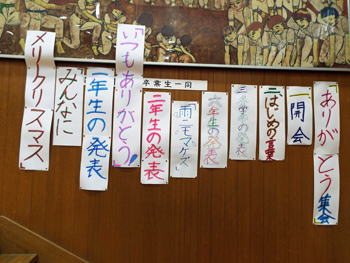 ありがとう集会
一 開会
二 はじめの言葉
六年生の発表
「雨ニモマケズ」
二年生の発表
卒業生一同
「いつもありがとう!」
一年生の発表
「みんなに
メリークリスマス